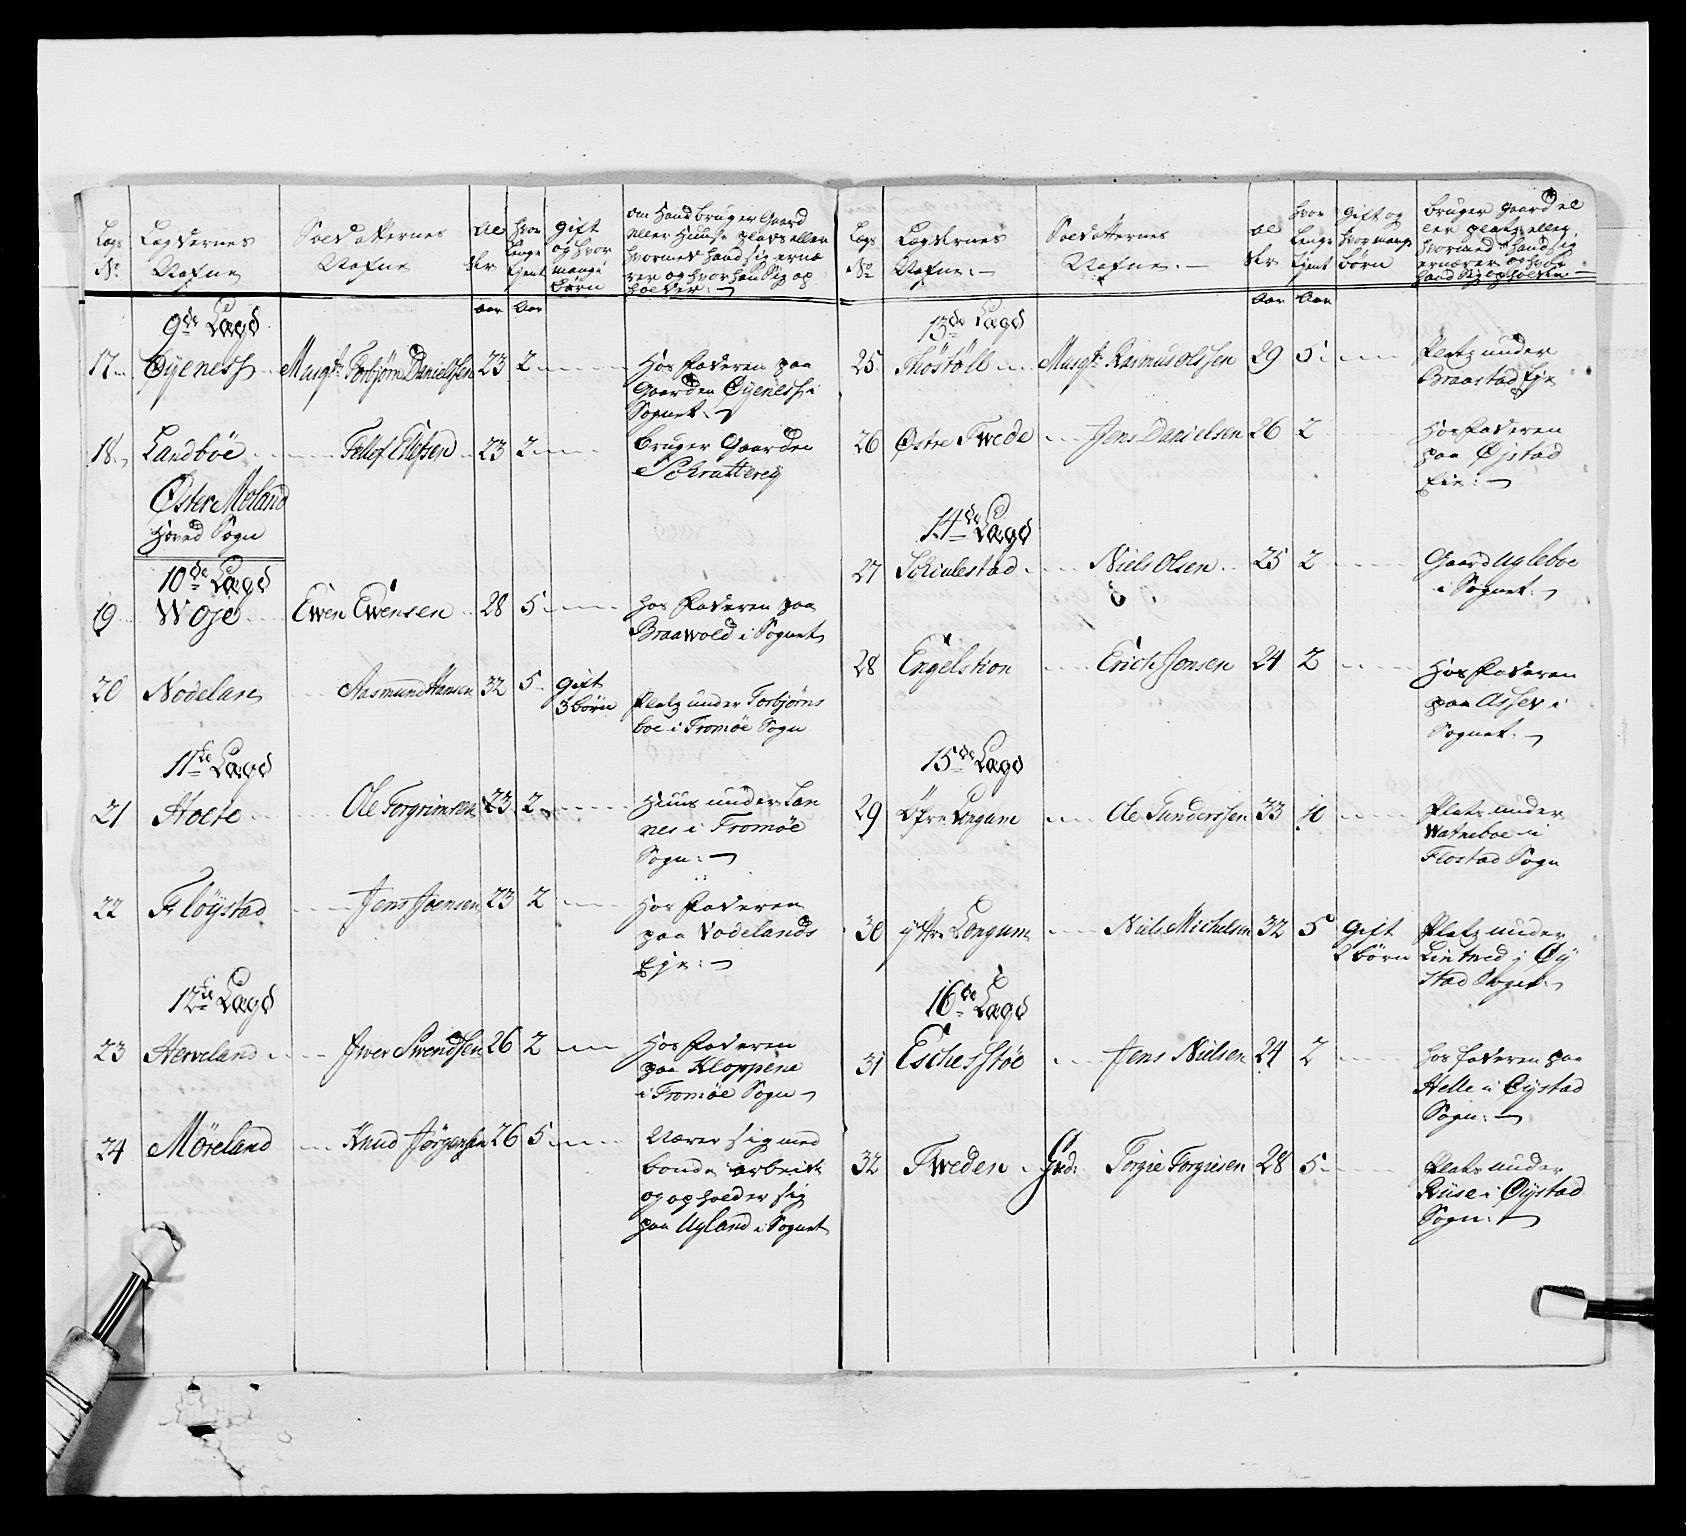 Lægs No | Lægdernes Nafne | Soldatternes Nafne | Alder | hvor længe tjent | gift og hvor mange børn | om Hand bruger Gaard eller Huuse plads eller hvormed hand sig ernærer og hvor hand Sig opholder
Aar | Aar
9de Lægd
17 Øyeness Musqt. Torbjørn Danielssen 23 2 Hos faderen paa
Gaarden Øyeness i
Sognet.
18. Landbøe Tellef Ellefsen 23 2 bruger Gaarden
Schratterej
Øster Moland
Hoved Sogn
10de Lægd
19 Woje Ewen Ewensen 28 5 hos faderen paa
Braawold i Sognet
20 Nodeland Aasmund Hansen 32 5 gift
3 børn Platz under Torbjørns
boe i Tromøe Sogn
11te Lægd
21 Holte Ole Torgrimsen 23 2 Huus under San
nes i Tromøe
Sogn:
22 Fløystad Jens Joensen 23 2 Hos faderen
paa Nodelands
Eje:
12te Lægd
23 Herveland Iwer Swendsen 26 2 Hos faderen
paa Kloppene
i Tromøe Sogn
24 Møreland Knud Jørgensen 26 5 Nærer sig med
bonde arbeide
og opholder sig
paa Ugland i Sognet
Lægs No | Lægdernes Nafne | Soldatternes Nafne | Alder | hvor længe tjent | gift og hvor mange børn | bruger gaard eller platz eller hvormed hand sig ernærer og hvor hand Sig opholder
Aar | Aar
13de Lægd
25 Thöstöll Musqt. Rasmus Olssen 29 5 Platz under
Braastad Eje
26 Østre Twede Jens Danielsen 26 2 Hos faderen
paa Øjstad
Eie:
14de Lægd
27 Schiulestad Niels Olsen 25 2 Gaard Ugleboe
i Sognet.
28 Engelstion Erich Jensen 24 2 Hos faderen
paa Assev i
Sognet.
15de Lægd
29 Øfre Longum Ole Gunderssen 33 10 Plats under
Watneboe i
Flostad Sogn
30 yttre Longum Niels Michelsen 32 5 Gift
2 børn Platz under
Lintved i Øy
stad Sogn
16de Lægd
31 Eschesstøe Jens Nielsen 24 2 hos faderen paa
Helle i Øystad
Sogn:
32 Tweden Grd: Torgie Torgiesen 28 5 Plats under
Riise i Øystad
Sogn: